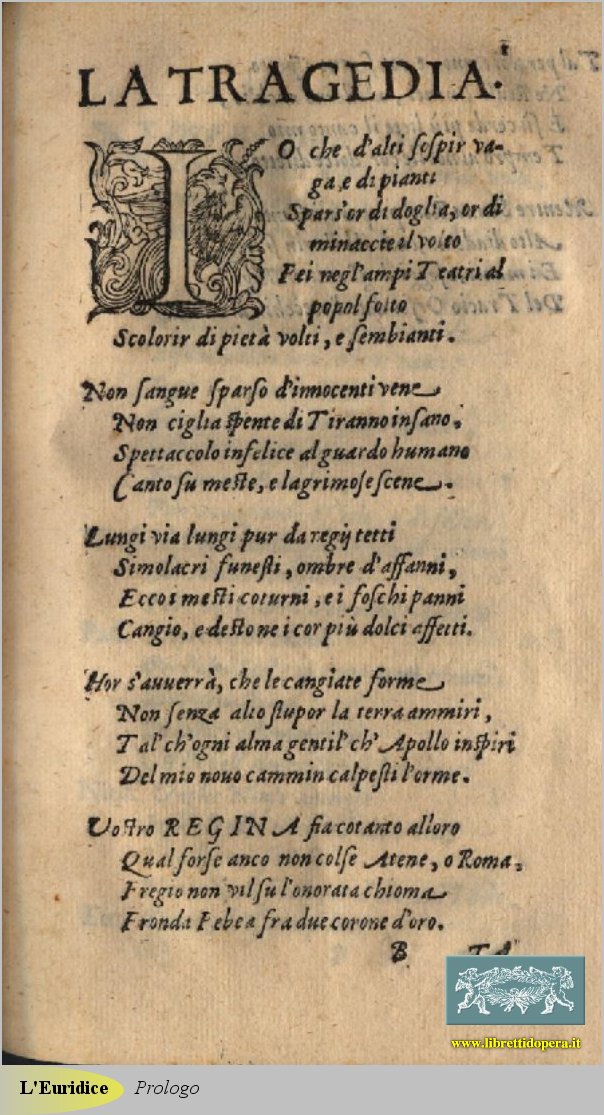 LA TRAGEDIA.
IO che d'alti sospir va-
ga, e di pianti
Spars'or di doglia, or di
minaccie il volto
Fei negl'ampi Teatri al
popol folto
Scolorir di pietà volti, e sembianti.
Non sangue sparso d'innocenti vene
Non ciglia spente di Tiranno insano,
Spettaccolo infelice al guardo humano
Canto su meste, e lagrimose scene.
Lungi via lungi pur da regij tetti
Simolacri funesti, ombre d'affanni,
Ecco i mesti coturni, e i foschi panni
Cangio, e desto ne i cor più dolci affetti.
Hor s'auuerrà, che le cangiate forme
Non senza alto stupor la terra ammiri,
Tal'ch'ogni alma gentil'ch'Apollo inspiri
Del mio nouo cammin calpesti l'orme.
Vostro REGINA fia cotanto alloro
Qual forse anco non colse Atene, o Roma,
Fregio non vil su l'onorata chioma
Fronda Febea fra due corone d'oro.
B TA
www.librettidopera.it
L'Euridice Prologo